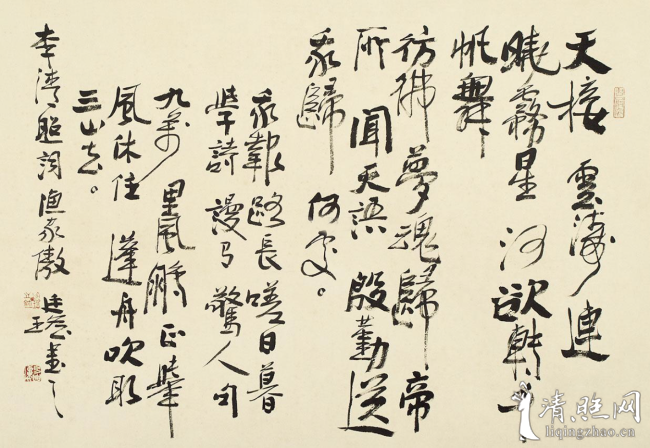 天接雲濤連
曉霧星河欲轉千
帆舞
彷彿夢魂歸帝
所聞天語殷勤
我歸何處。
我報路長嗟日暮
學詩謾有驚人句
九萬里風鵬正舉
風休住蓬舟吹取
三山去。
李清照詞漁家傲
清照网
liqingzhao.cn